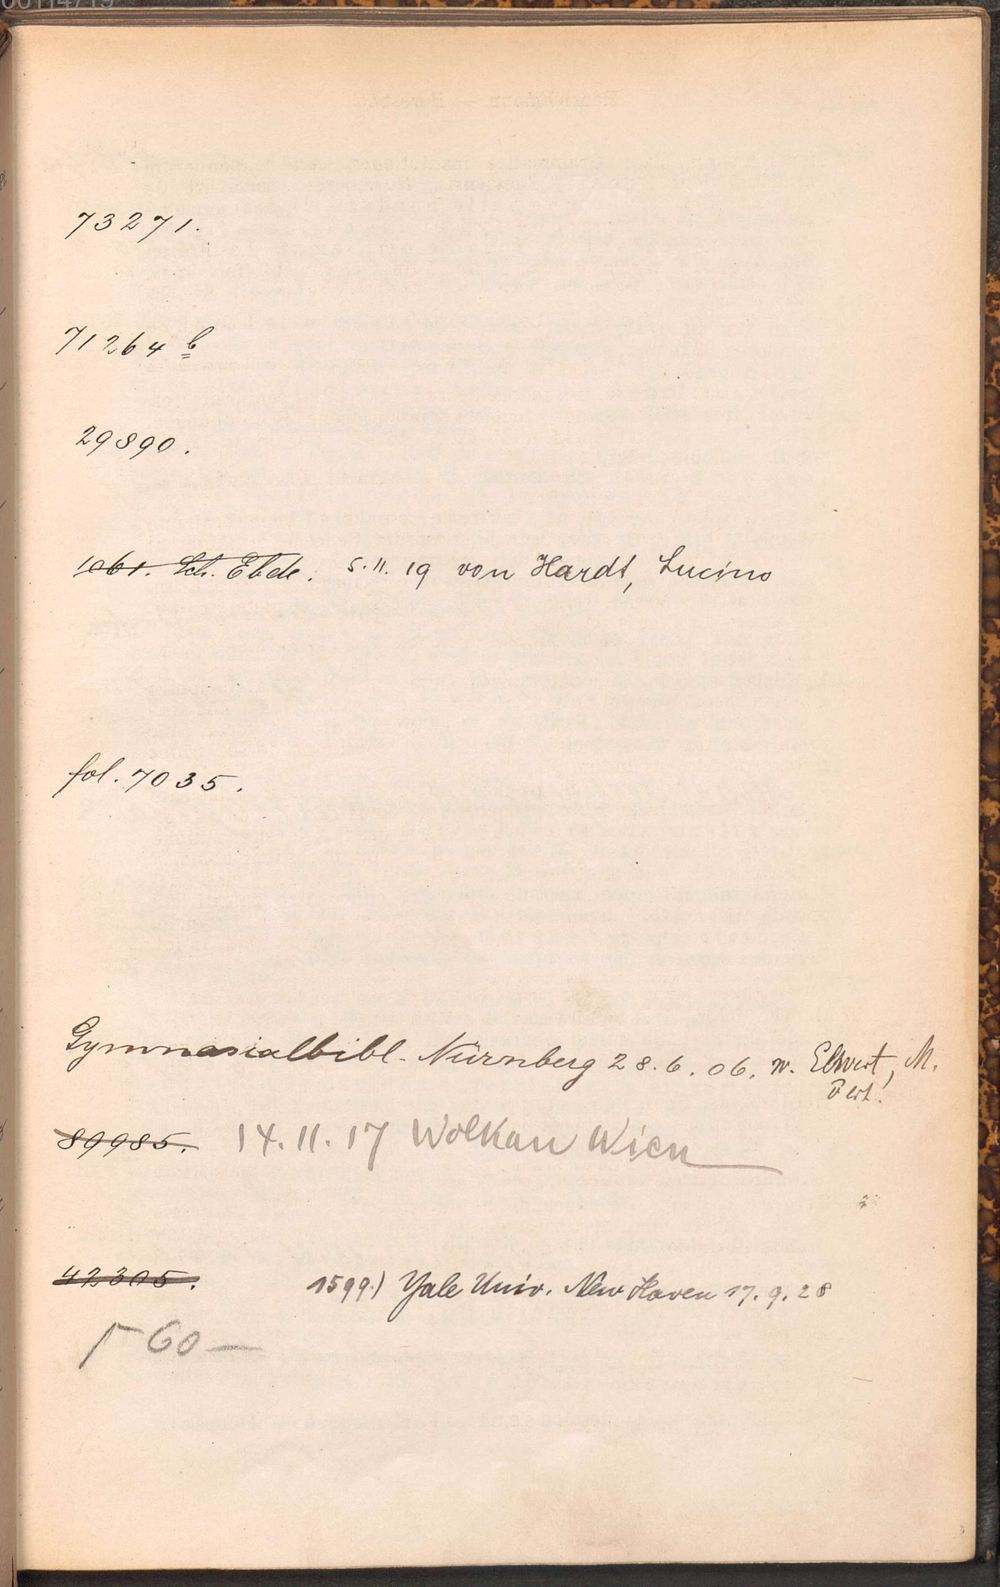 73271.
71264 b
29890.
1061. Sch. Ebde. 5.11.19 von Hardt, Lucino
fol. 7035.
Gymnasialbibl. Nürnberg 28.6.06. v. Elwert, M.
89985. 14.11.17 Wolkan Wien
42305. 1599.) Yale Univ. New Haven 17.9.28
60—